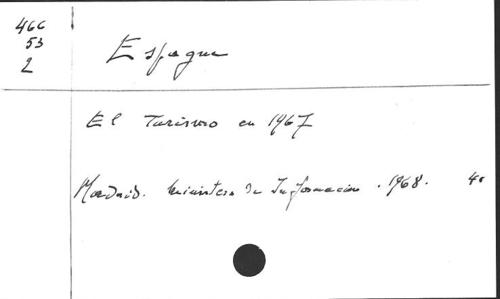 466
53
2
Espagne
El Turismo en 1967
Madrid. Ministerio de Informacion. 1968. 4°